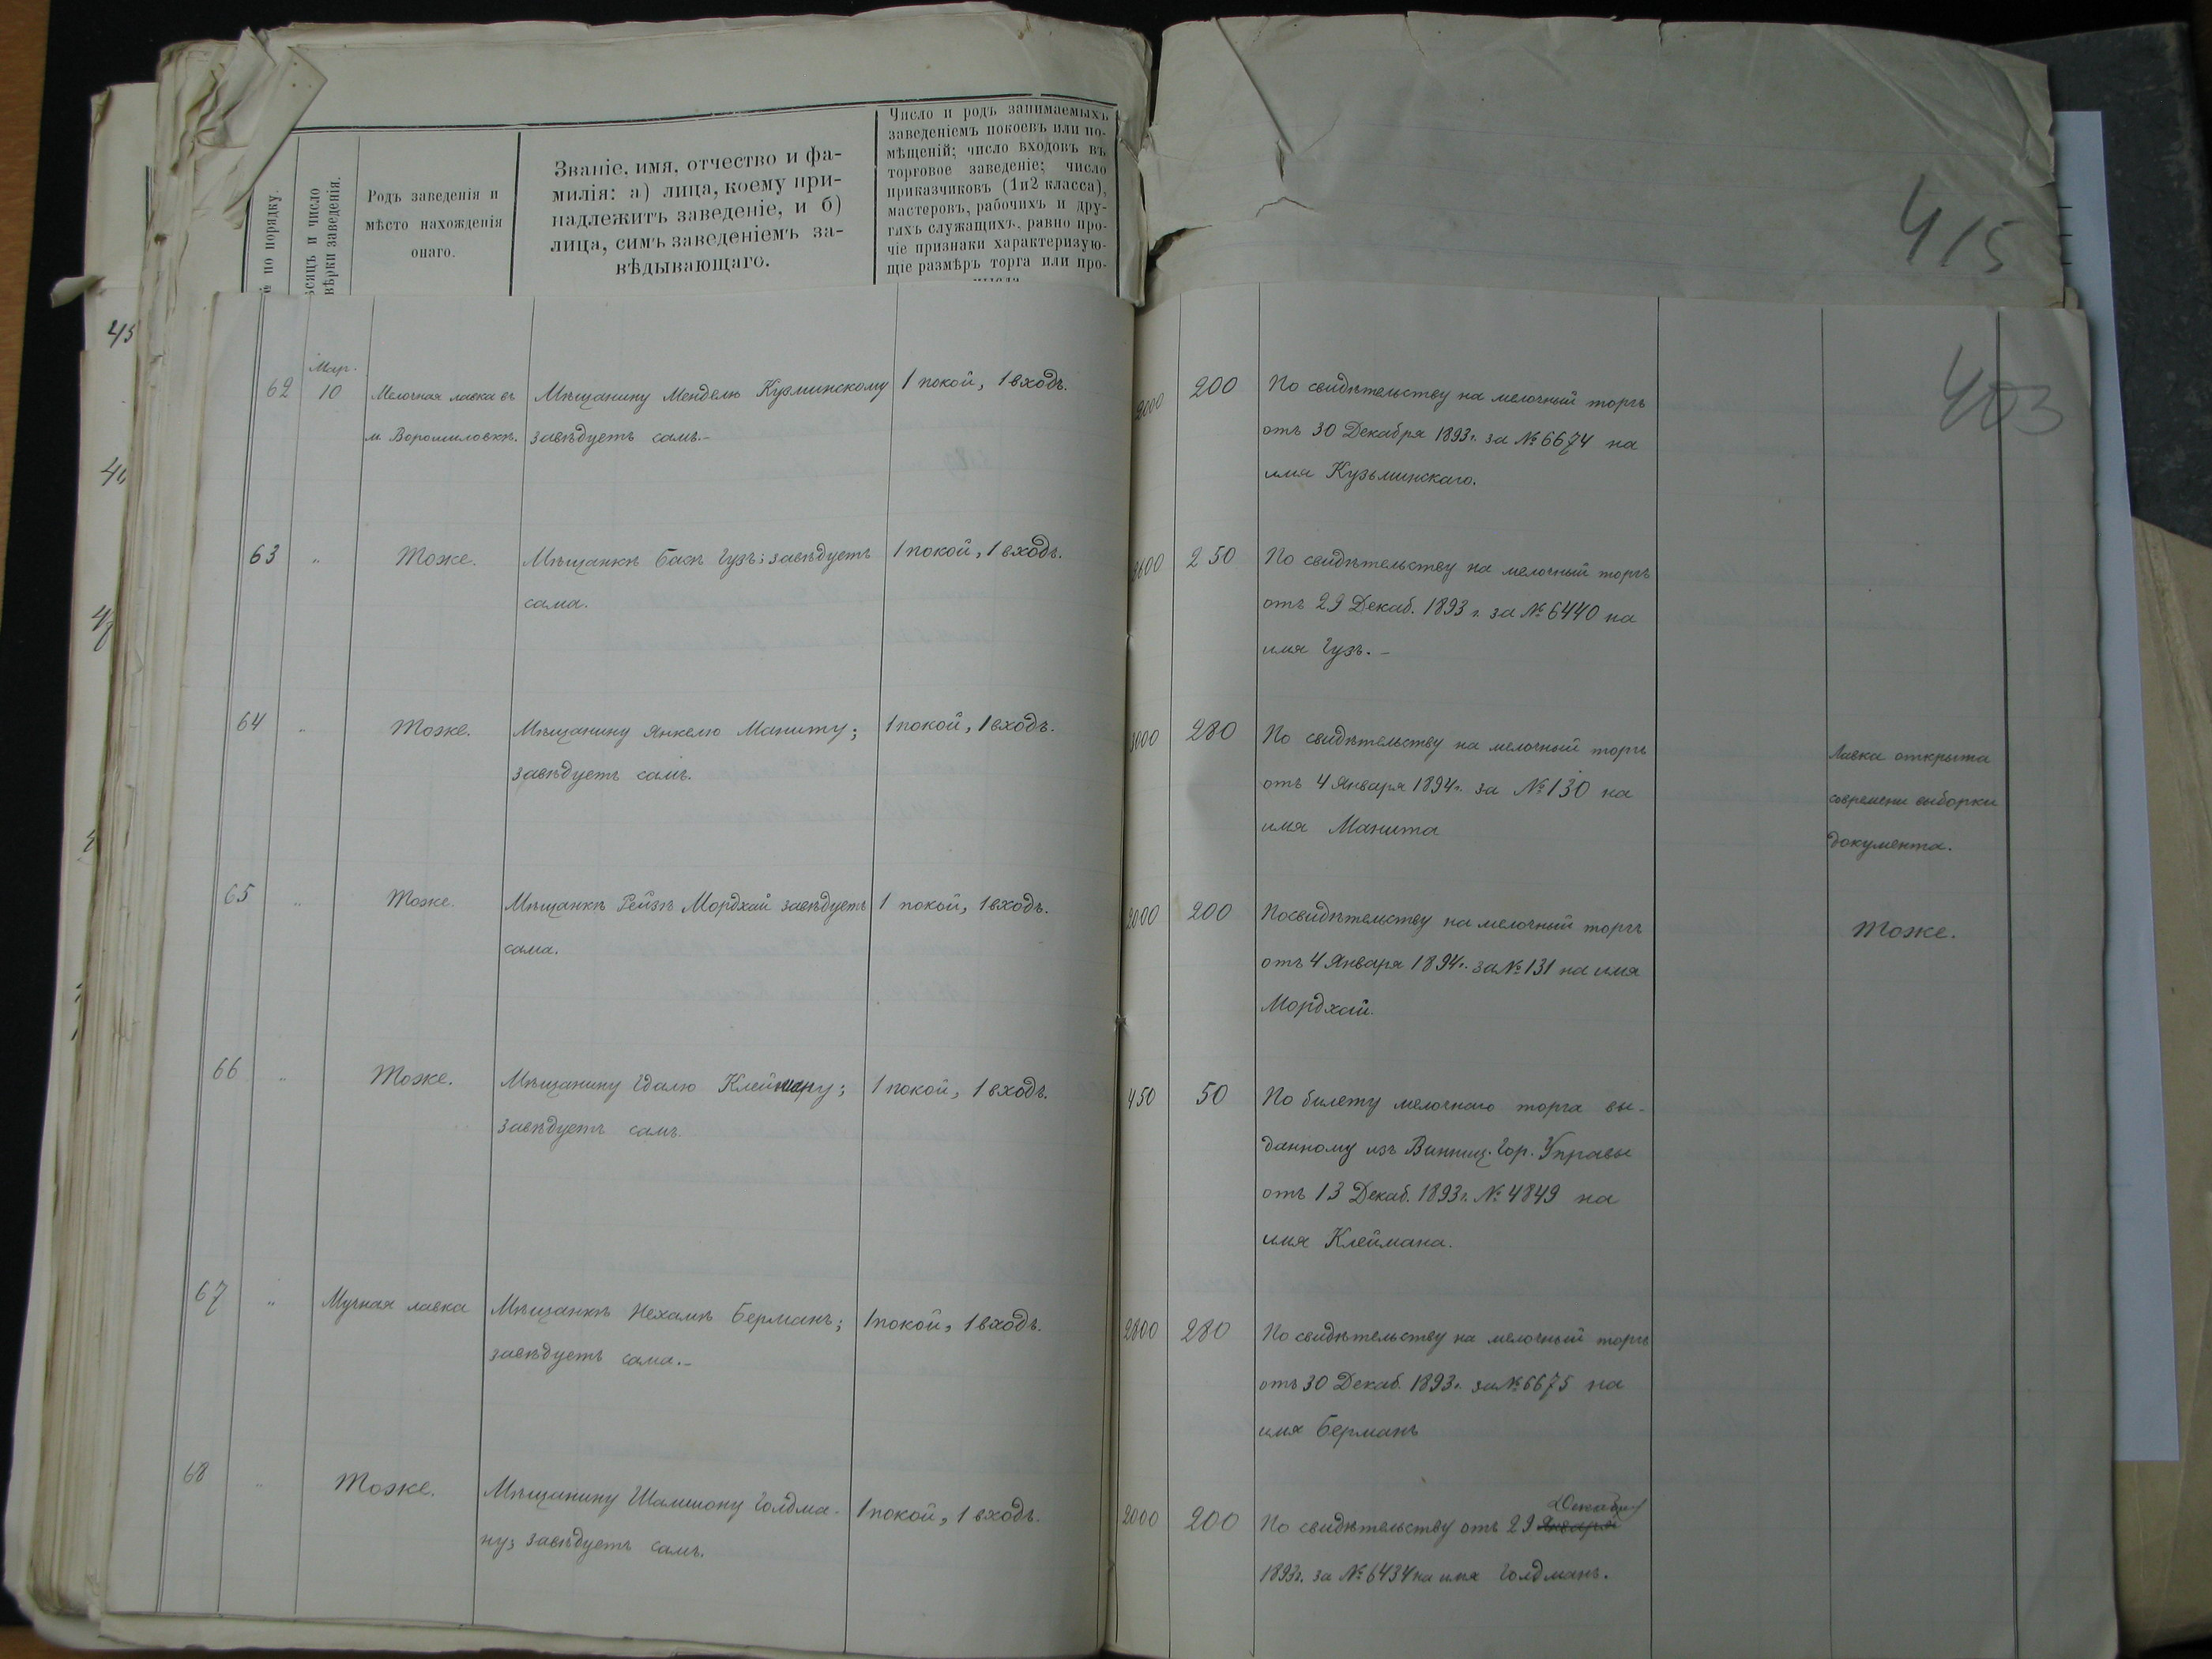 № по порядку.
сяцъ и число
вѣрки заведенія.
Родъ заведенія и
мѣсто нахожденія
онаго.
Званіе, имя, отчество и фа-
милія: а) лица, коему при-
надлежитъ заведеніе, и б)
лица, симъ заведеніемъ за-
вѣдывающаго.
Число и родъ занимаемыхъ
заведеніемъ покоевъ или по-
мѣщеній; число входовъ въ
торговое заведеніе; число
приказчиковъ (1и2 класса),
мастеровъ, рабочихъ и дру-
гихъ служащихъ, равно про-
чіе признаки характеризую-
щіе размѣръ торга или про-
415
403
62
Мар.
10
Мелочная лавка въ
м. Ворошиловкѣ.
Мѣщанину Менделю Кузминскому
завѣдуетъ самъ.-
1 покой, 1 входъ.
2000
200
По свидѣтельству на мелочный торгъ
отъ 30 Декабря 1893г. за № 6674 на
имя Кузьминскаго.
63
"
Тоже.
Мѣщанкѣ Басѣ Гузъ; завѣдуетъ
сама.
1 покой, 1 входъ.
2600
250
По свидѣтельству на мелочный торгъ
отъ 29 Декаб. 1893 г. за № 6440 на
имя Гузъ. -
64
"
Тоже.
Мѣщанину Янкелю Маниту;
завѣдуетъ самъ.
1 покой, 1 входъ.
3000
280
По свидѣтельству на мелочный торгъ
отъ 4 Января 1894г. за № 130 на
имя Манита
Лавка открыта
современи выборки
документа.
65
"
Тоже.
Мѣщанкѣ Рейзѣ Мордхай завѣдуетъ
сама.
1 покой, 1 входъ.
2000
200
Посвидѣтельству на мелочный торгъ
отъ 4 Января 1894г. за № 131 на имя
Мордхай.
Тоже.
66
"
Тоже.
Мѣщанину Гдалю Клейману;
завѣдуетъ самъ.
1 покой, 1 входъ.
450
50
По билету мелочнаго торга вы-
данному изъ Винниц. Гор. Управы
отъ 13 Декаб. 1893г. № 4849 на
имя Клеймана.
67
"
Мучная лавка
Мѣщанкѣ Нехамѣ Берманъ;
завѣдуетъ сама.-
1 покой, 1 входъ.
2800
280
По свидѣтельству на мелочный торгъ
отъ 30 Декаб. 1893г. за № 6675 на
имя Берманъ
68
"
Тоже.
Мѣщанину Шамшону Голдма-
ну; завѣдуетъ самъ.
1 покой, 1 входъ.
2000
200
Декабря
По свидѣтельству отъ 29 Января
1893г. за № 6434 на имя Голдманъ.